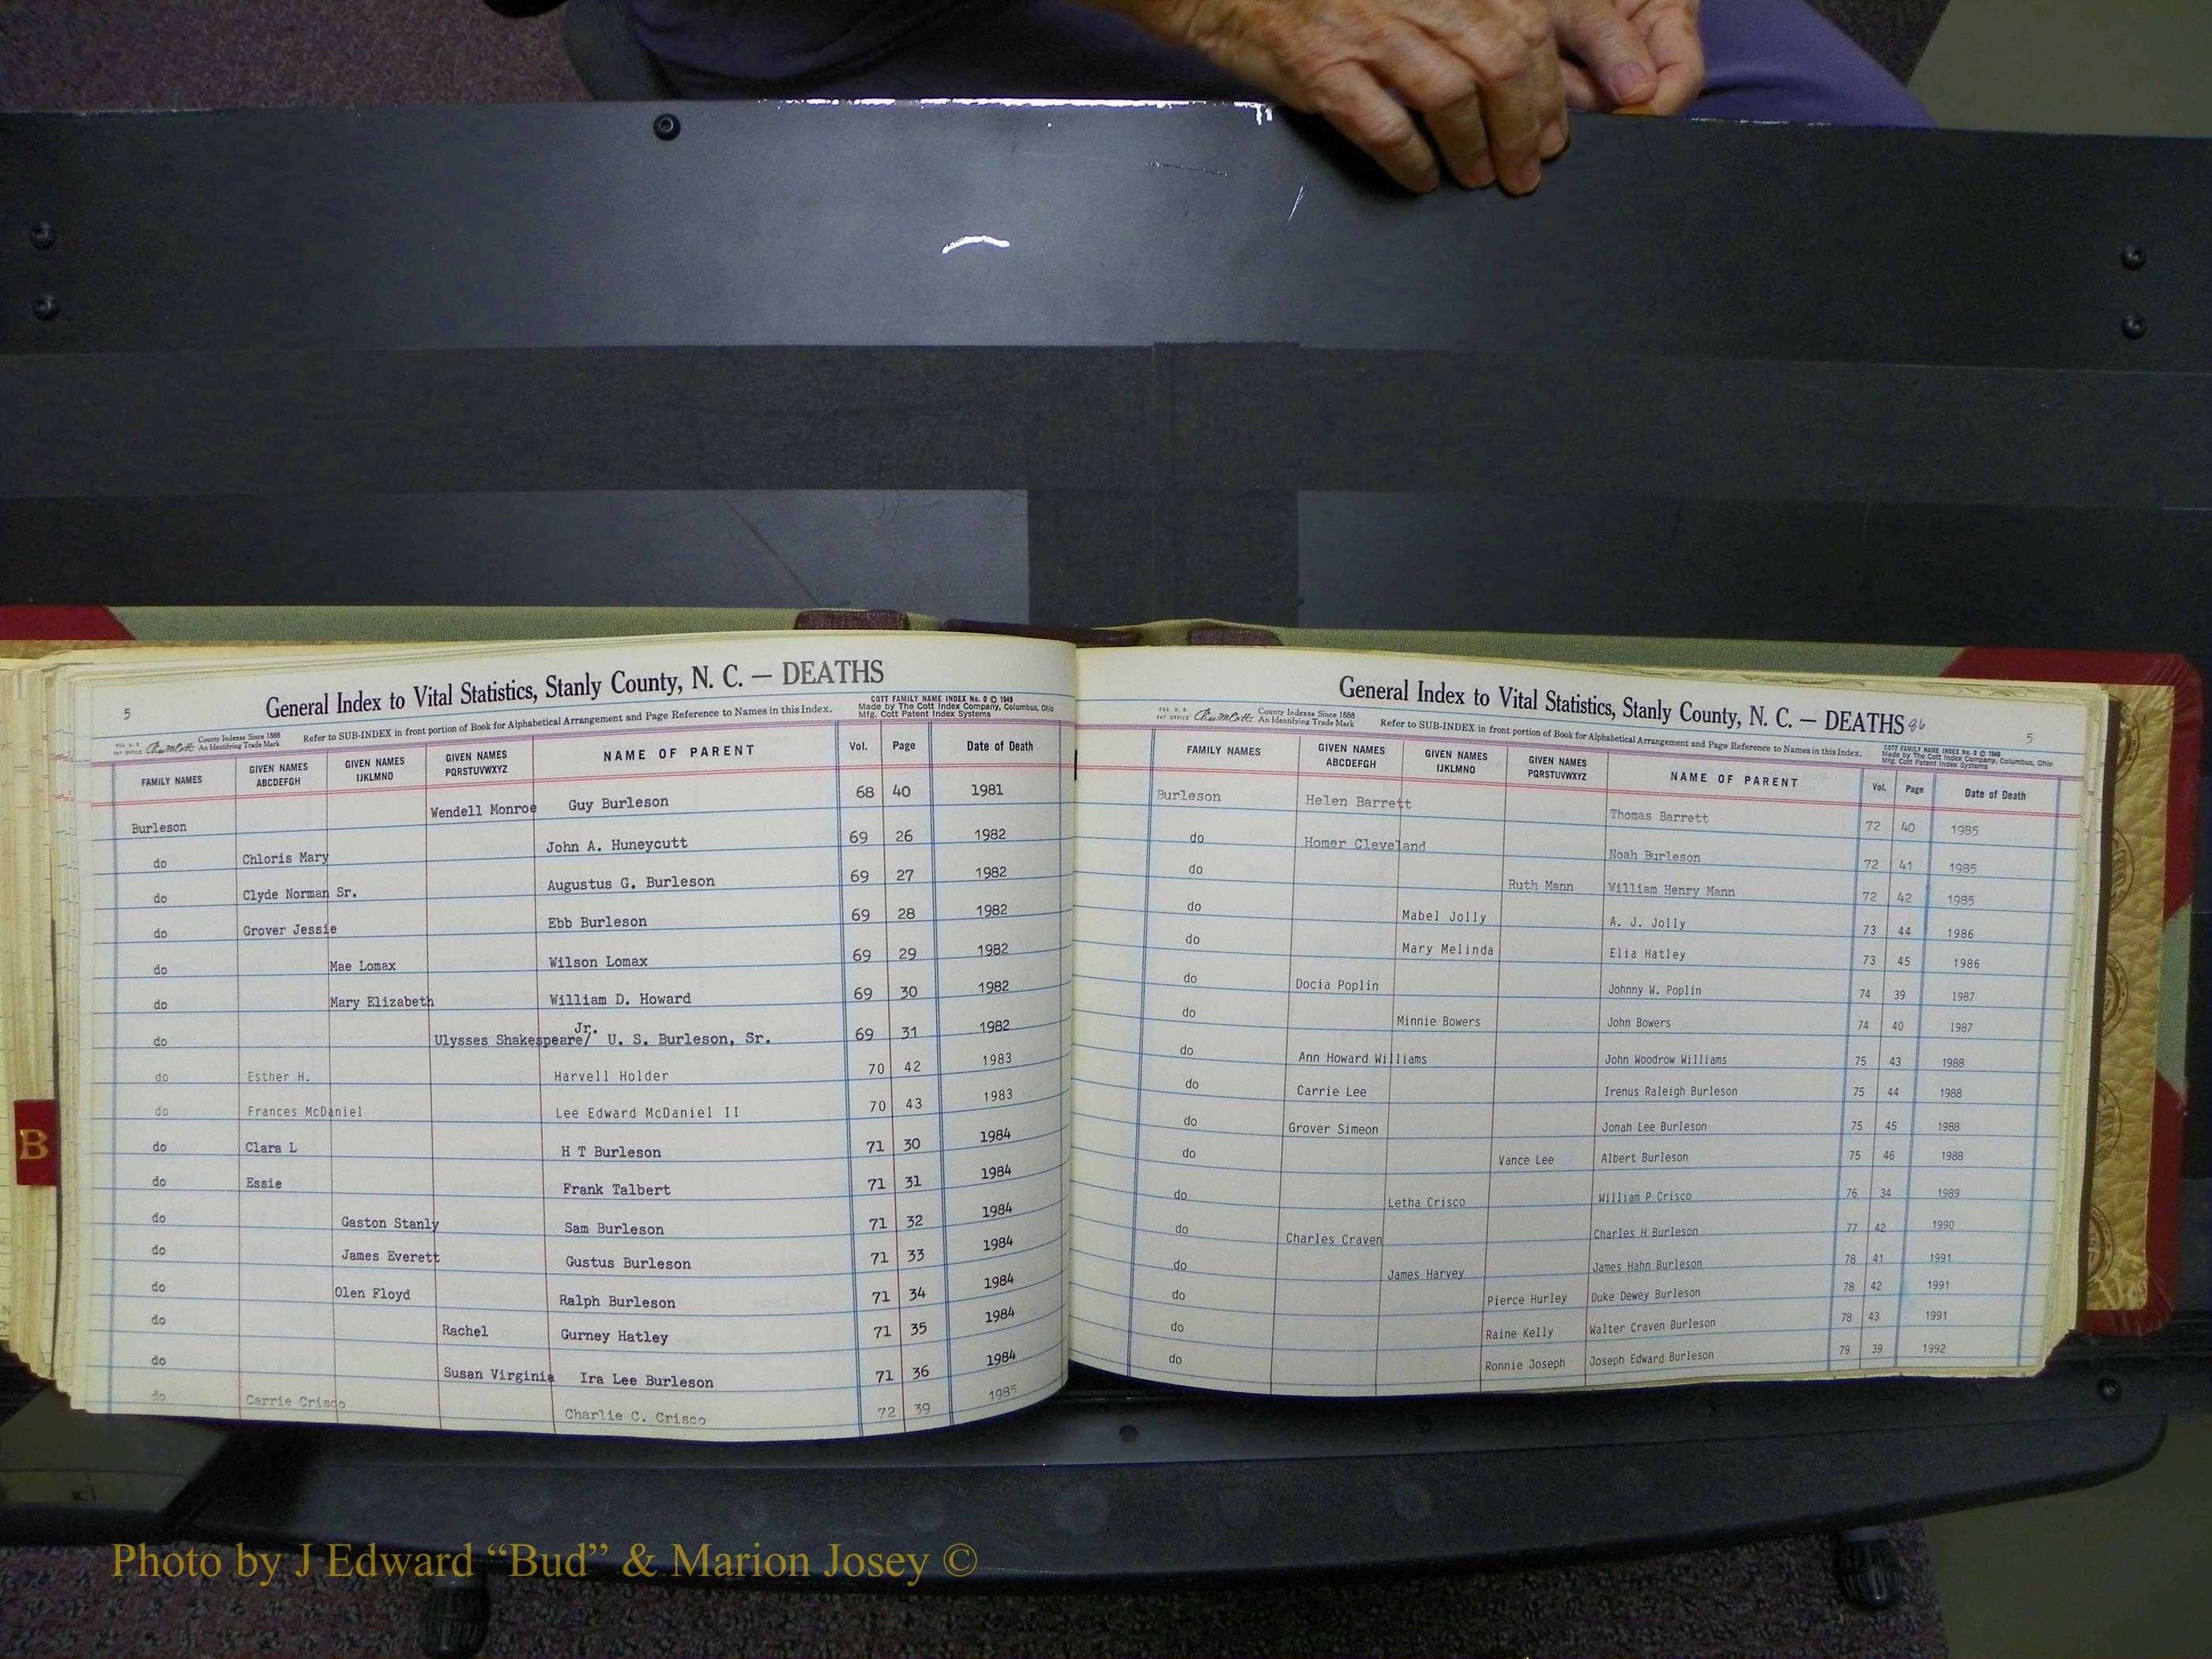 General Index to Vital Statistics, Stanly County, N. C. — DEATHS
5
REG. U. S. PAT OFFICE County Indexes Since 1888 An Identifying Trade Mark
Refer to SUB-INDEX in front portion of Book for Alphabetical Arrangement and Page Reference to Names in this Index.
COTT FAMILY NAME INDEX No. 0 © 1949
Made by The Cott Index Company, Columbus, Ohio
Mfg. Cott Patent Index Systems
FAMILY NAMES GIVEN NAMES ABCDEFGH GIVEN NAMES IJKLMNO GIVEN NAMES PQRSTUVWXYZ NAME OF PARENT Vol. Page Date of Death
Burleson Wendell Monroe Guy Burleson 68 40 1981
do Chloris Mary John A. Huneycutt 69 26 1982
do Clyde Norman Sr. Augustus G. Burleson 69 27 1982
do Grover Jessie Ebb Burleson 69 28 1982
do Mae Lomax Wilson Lomax 69 29 1982
do Mary Elizabeth William D. Howard 69 30 1982
do Ulysses Shakespeare/ Jr. U. S. Burleson, Sr. 69 31 1982
do Esther H. Harvell Holder 70 42 1983
do Frances McDaniel Lee Edward McDaniel II 70 43 1983
do Clara L H T Burleson 71 30 1984
do Essie Frank Talbert 71 31 1984
do Gaston Stanly Sam Burleson 71 32 1984
do James Everett Gustus Burleson 71 33 1984
do Olen Floyd Ralph Burleson 71 34 1984
do Rachel Gurney Hatley 71 35 1984
do Susan Virginia Ira Lee Burleson 71 36 1984
do Carrie Crisco Charlie C. Crisco 72 39 1985
B
General Index to Vital Statistics, Stanly County, N. C. — DEATHS 86
5
REG. U. S. PAT OFFICE County Indexes Since 1888 An Identifying Trade Mark
Refer to SUB-INDEX in front portion of Book for Alphabetical Arrangement and Page Reference to Names in this Index.
COTT FAMILY NAME INDEX No. 0 © 1949
Made by The Cott Index Company, Columbus, Ohio
Mfg. Cott Patent Index Systems
FAMILY NAMES GIVEN NAMES ABCDEFGH GIVEN NAMES IJKLMNO GIVEN NAMES PQRSTUVWXYZ NAME OF PARENT Vol. Page Date of Death
Burleson Helen Barrett Thomas Barrett 72 40 1985
do Homer Cleveland Noah Burleson 72 41 1985
do Ruth Mann William Henry Mann 72 42 1985
do Mabel Jolly A. J. Jolly 73 44 1986
do Mary Melinda Elia Hatley 73 45 1986
do Docia Poplin Johnny W. Poplin 74 39 1987
do Minnie Bowers John Bowers 74 40 1987
do Ann Howard Williams John Woodrow Williams 75 43 1988
do Carrie Lee Irenus Raleigh Burleson 75 44 1988
do Grover Simeon Jonah Lee Burleson 75 45 1988
do Vance Lee Albert Burleson 75 46 1988
do Letha Crisco William P Crisco 76 34 1989
do Charles Craven Charles H Burleson 77 42 1990
do James Harvey James Hahn Burleson 78 41 1991
do Pierce Hurley Duke Dewey Burleson 78 42 1991
do Raine Kelly Walter Craven Burleson 78 43 1991
do Ronnie Joseph Joseph Edward Burleson 79 39 1992
Photo by J Edward “Bud” & Marion Josey ©